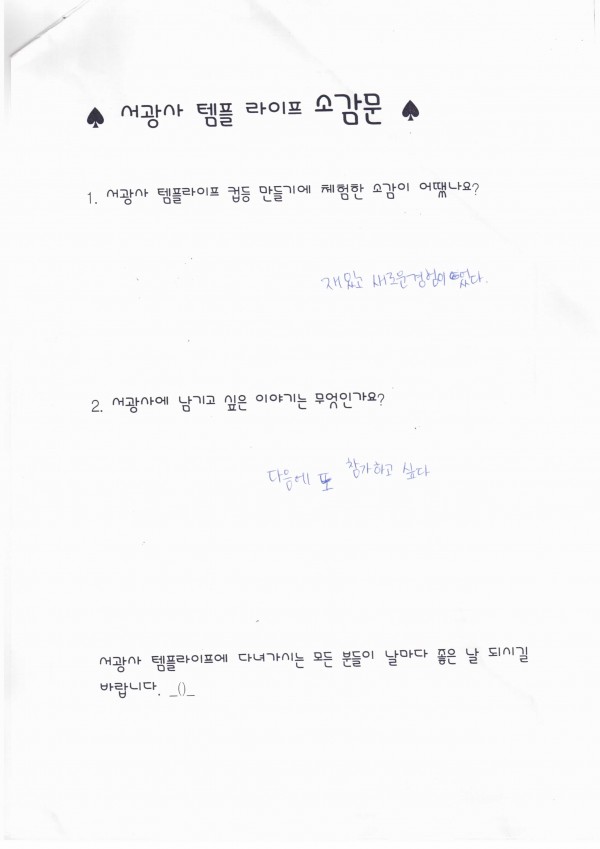 ♠ 서광사 템플 라이프 소감문 ♠
1. 서광사 템플라이프 컵등 만들기에 체험한 소감이 어땠나요?
재밌고 새로운경험이었다.
2. 서광사에 남기고 싶은 이야기는 무엇인가요?
다음에 또 참가하고 싶다
서광사 템플라이프에 다녀가시는 모든 분들이 날마다 좋은 날 되시길
바랍니다. _()_